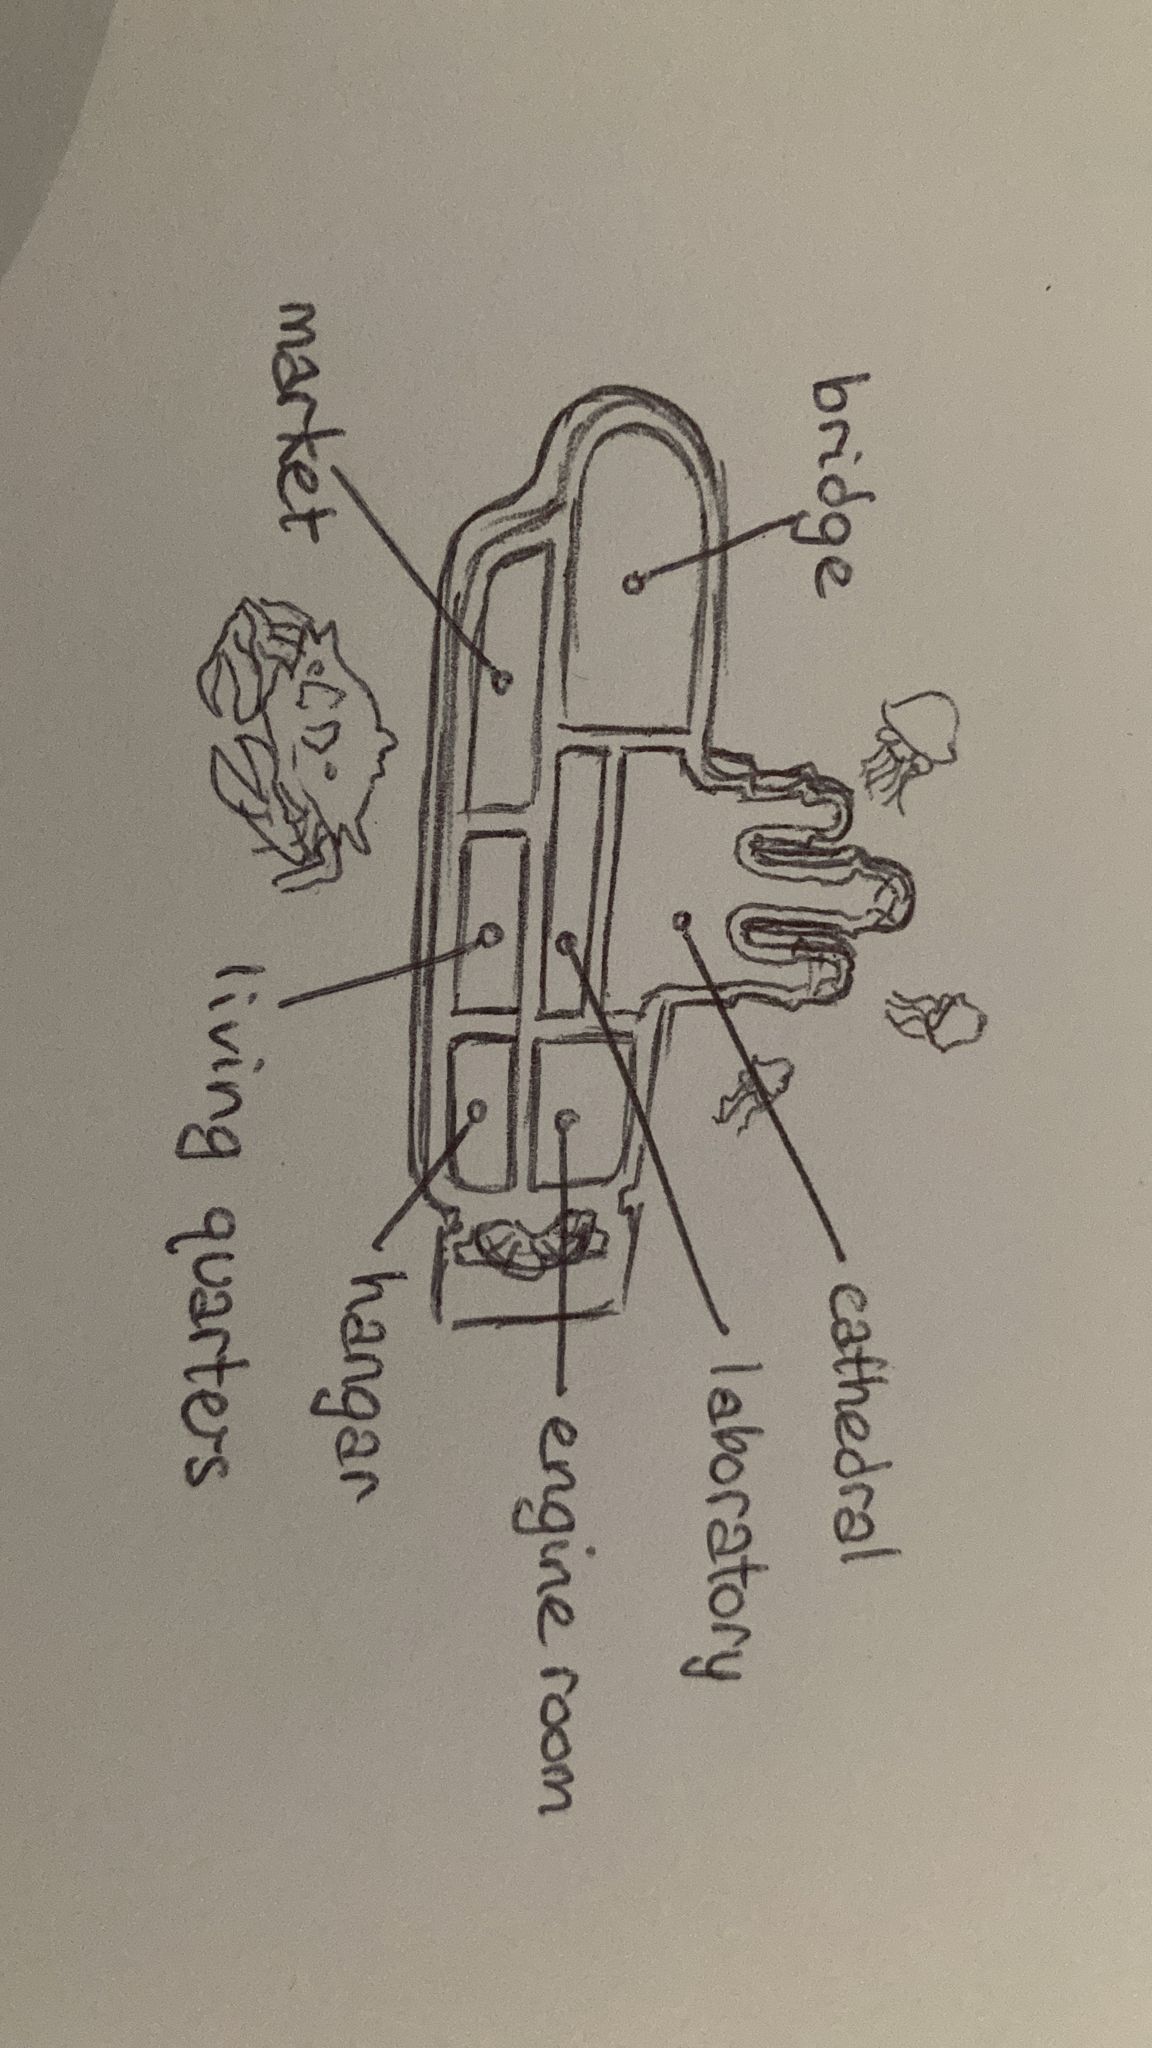 bridge
cathedral
laboratory
engine room
hangar
living quarters
market